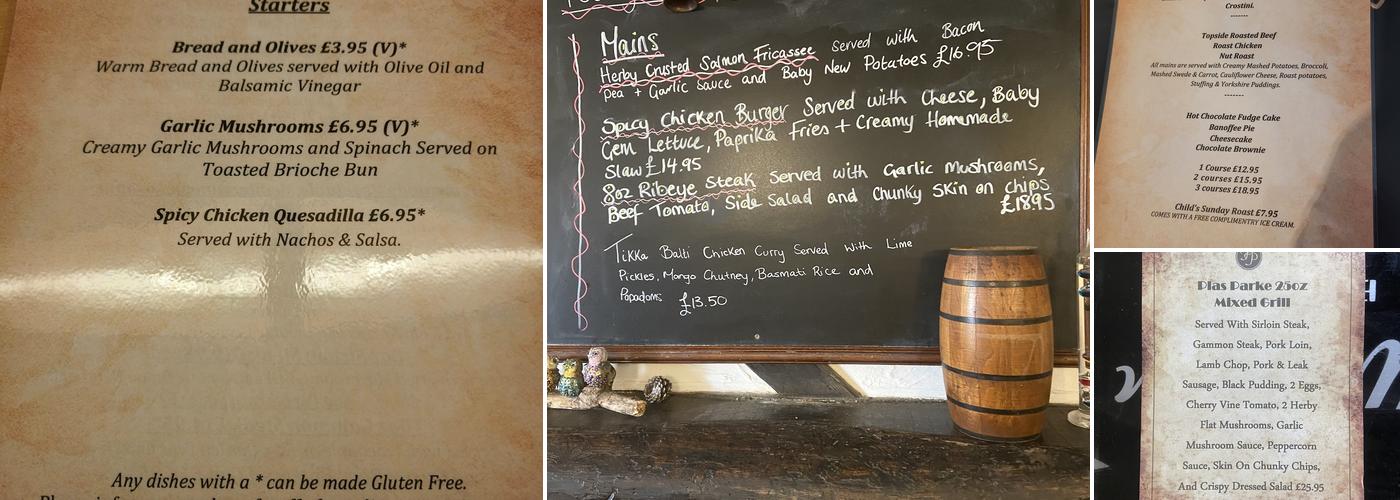 Starters
Bread and Olives £3.95 (V)*
Warm Bread and Olives served with Olive Oil and
Balsamic Vinegar
Garlic Mushrooms £6.95 (V)*
Creamy Garlic Mushrooms and Spinach Served on
Toasted Brioche Bun
Spicy Chicken Quesadilla £6.95*
Served with Nachos & Salsa.
Any dishes with a * can be made Gluten Free.
Mains
Herby Crusted Salmon Fricassee Served with Bacon
Pea + Garlic Sauce and Baby New Potatoes £16.95
Spicy Chicken Burger Served with Cheese, Baby
Gem Lettuce, Paprika Fries + Creamy Homemade
Slaw £14.95
8oz Ribeye Steak Served with Garlic Mushrooms,
Beef Tomato, Side Salad and Chunky Skin on Chips
£18.95
Tikka Balti Chicken Curry Served With Lime
Pickles, Mango Chutney, Basmati Rice and
Popadoms £13.50
Crostini.
-------
Topside Roasted Beef
Roast Chicken
Nut Roast
All mains are served with Creamy Mashed Potatoes, Broccoli,
Mashed Swede & Carrot, Cauliflower Cheese, Roast potatoes,
Stuffing & Yorkshire Puddings.
-------
Hot Chocolate Fudge Cake
Banoffee Pie
Cheesecake
Chocolate Brownie
1 Course £12.95
2 courses £15.95
3 courses £18.95
Child's Sunday Roast £7.95
COMES WITH A FREE COMPLIMENTRY ICE CREAM.
Plas Parke 25oz
Mixed Grill
Served With Sirloin Steak,
Gammon Steak, Pork Loin,
Lamb Chop, Pork & Leak
Sausage, Black Pudding, 2 Eggs,
Cherry Vine Tomato, 2 Herby
Flat Mushrooms, Garlic
Mushroom Sauce, Peppercorn
Sauce, Skin On Chunky Chips,
And Crispy Dressed Salad £25.95